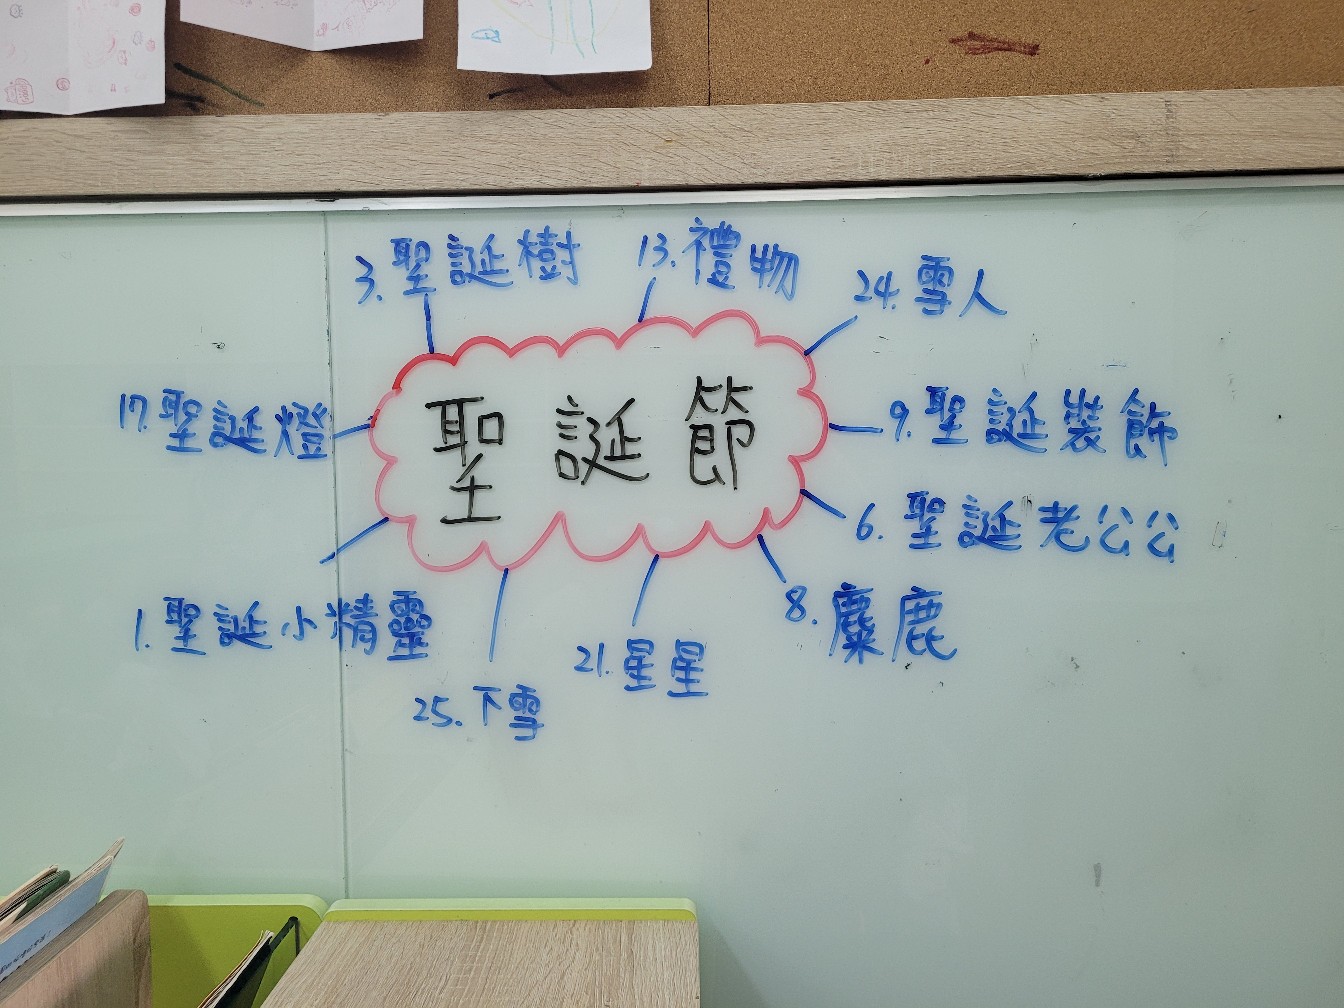 3. 聖誕樹
13. 禮物
24. 雪人
17. 聖誕燈
聖誕節
9. 聖誕裝飾
6. 聖誕老公公
1. 聖誕小精靈
8. 麋鹿
21. 星星
25. 下雪